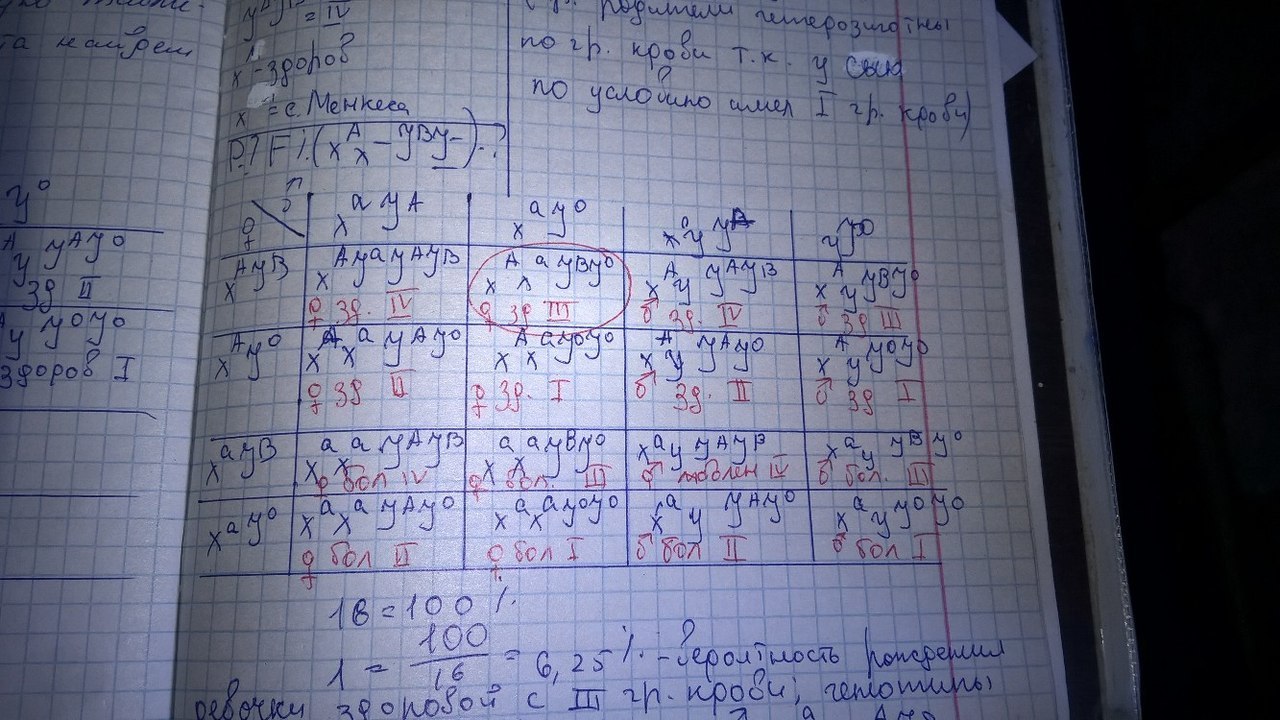 та найдем
= IV
x - здоров
x = с. Менкеса
P? F1? (xᴬx – yᴮy–) - ?
родители гетерозиготны
по гр. крови т.к. у сына
по условию имел I гр. крови)
y⁰
y yᴬy⁰
зд II
y y⁰y⁰
здоров I
♀ ♂
xᵃyᴬ
xᵃy⁰
yy⁰
xᴬyᴮ
♀ зд. IV
xᴬxᵃyᴮy⁰
♀ зд III
xᴬy yᴬyᴮ
♂ зд. IV
xᴬy yᴮy⁰
♂ зд III
xᴬy⁰
xᴬxᵃyᴬy⁰
♀ зд II
xᴬxᵃy⁰y⁰
♀ зд. I
xᴬy yᴬy⁰
♂ зд. II
xᴬy y⁰y⁰
♂ зд I
xᵃyᴮ
xᵃxᵃyᴬyᴮ
♀ бол IV
xᵃxᵃyᴮy⁰
♀ бол. III
xᵃy yᴬyᴮ
♂ IV
xᵃy yᴮy⁰
♂ бол. III
xᵃy⁰
xᵃxᵃyᴬy⁰
♀ бол II
xᵃxᵃy⁰y⁰
♀ бол I
xᵃy yᴬy⁰
♂ бол II
xᵃy y⁰y⁰
♂ бол I
16 = 100 %
1 = 100/16 = 6,25 % - вероятность рождения
девочки здоровой с III гр. крови; генотипы